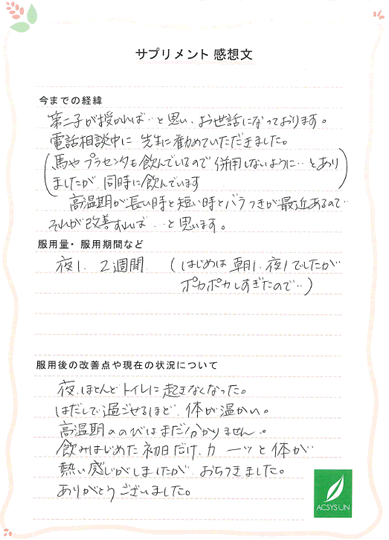 サプリメント 感想文
今までの経緯
第二子が授かれば‥と思い、お世話になっております。
電話相談中に 先生に勧めていただきました。
(馬やプラセンタも飲んでいるので 併用しないように‥とあり
ましたが、同時に飲んでいます)
高温期が長い時と短い時とバラつきが最近あるので
それが改善すれば‥と思います。
服用量・服用期間など
夜1. 2週間 (はじめは 朝1.夜1でしたが
ポカポカしすぎたので‥)
服用後の改善点や現在の状況について
夜、ほとんどトイレに起きなくなった。
はだしで過ごせるほど、体が温かい。
高温期ののびはまだ分かりません。
飲みはじめた初日だけ、カーッと体が
熱い感じがしましたが、おちつきました。
ありがとうございました。
ACSYS UN